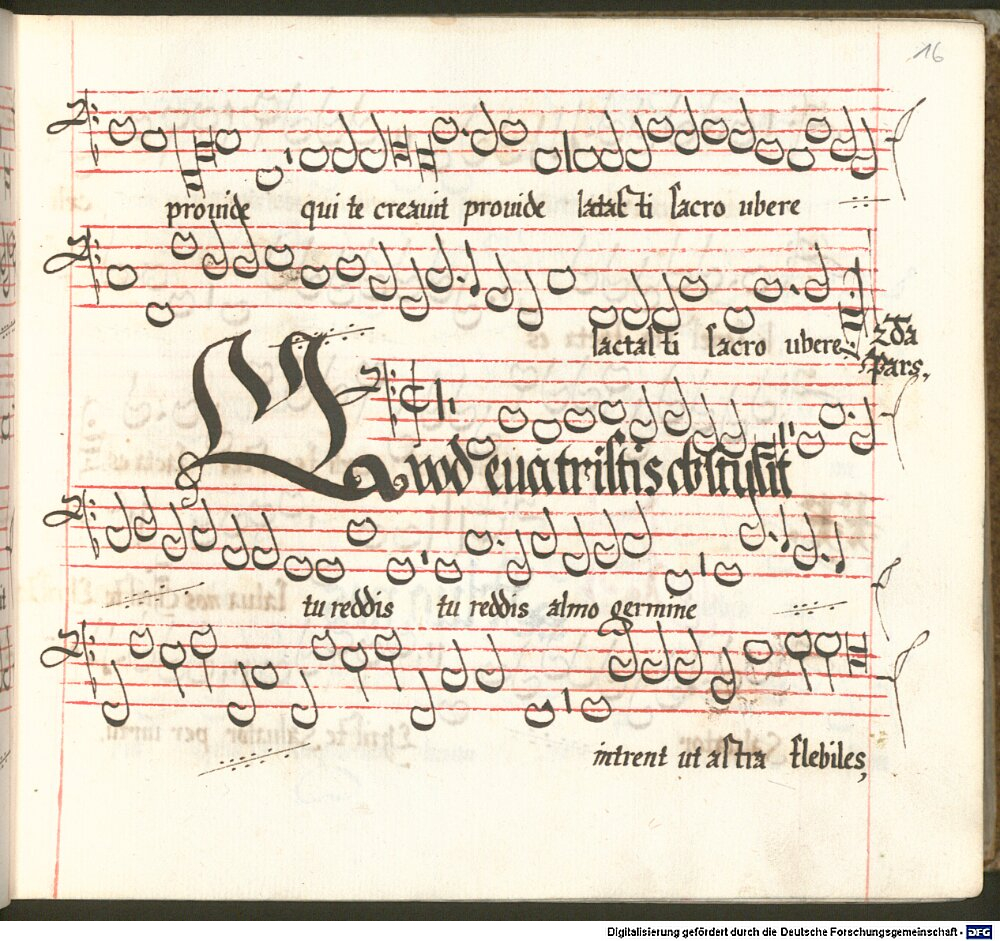 16
prouide qui te creauit prouide lactasti sacro ubere
lactasti sacro ubere 2da
Pars.
Quod eua tristis abstulit
tu reddis tu reddis almo germine
intrent ut astra flebiles,
Digitalisierung gefördert durch die Deutsche Forschungsgemeinschaft - DFG